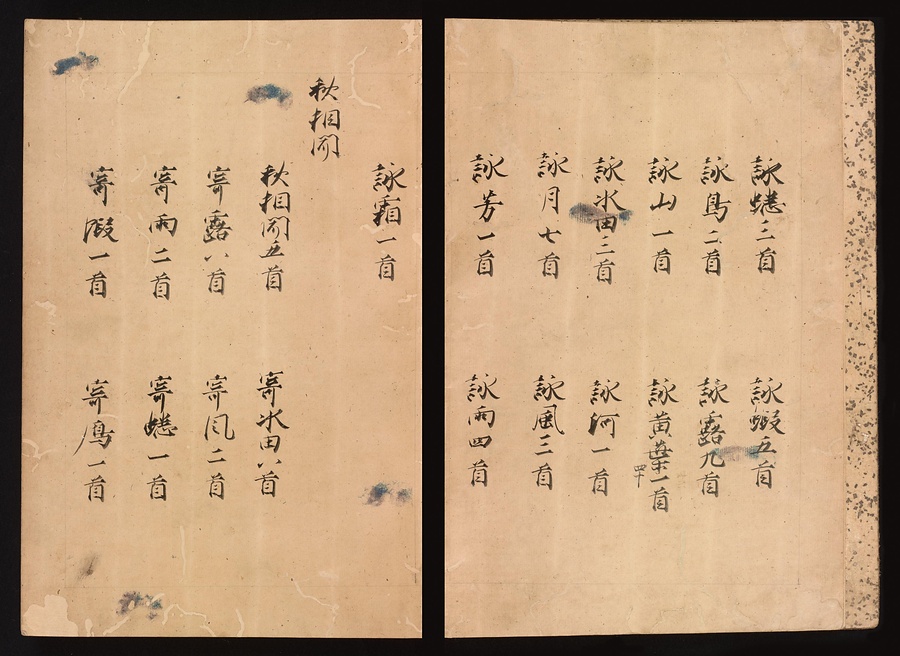 詠蟋三首　詠蝦五首
詠鳥二首　詠露九首
詠山一首　詠黄葉一首
四十
詠水田三首　詠河一首
詠月七首　詠風三首
詠芳一首　詠雨四首
詠霜一首
秋相聞
秋相聞五首　寄水田八首
寄露八首　寄風二首
寄雨二首　寄蟋一首
寄蝦一首　寄鴈一首